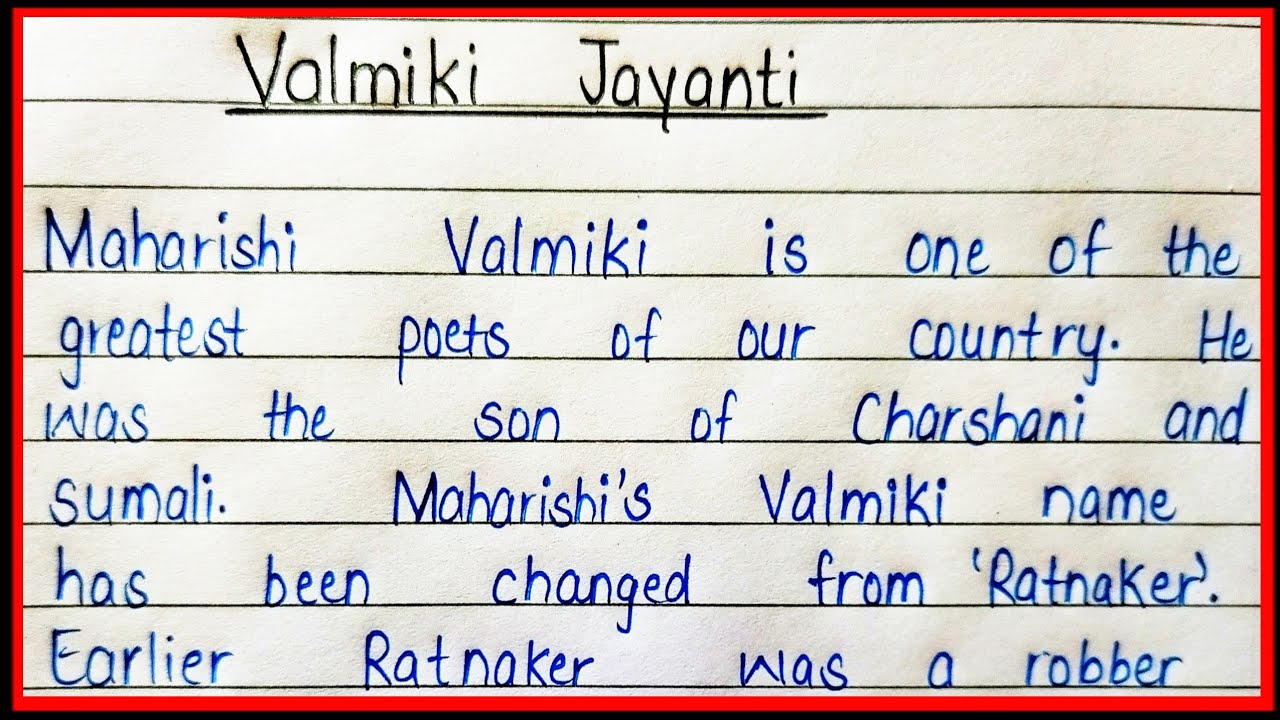 Valmiki Jayanti
Maharishi Valmiki is one of the
greatest poets of our country. He
was the son of Charshani and
sumali. Maharishi's Valmiki name
has been changed from 'Ratnaker'.
Earlier Ratnaker was a robber